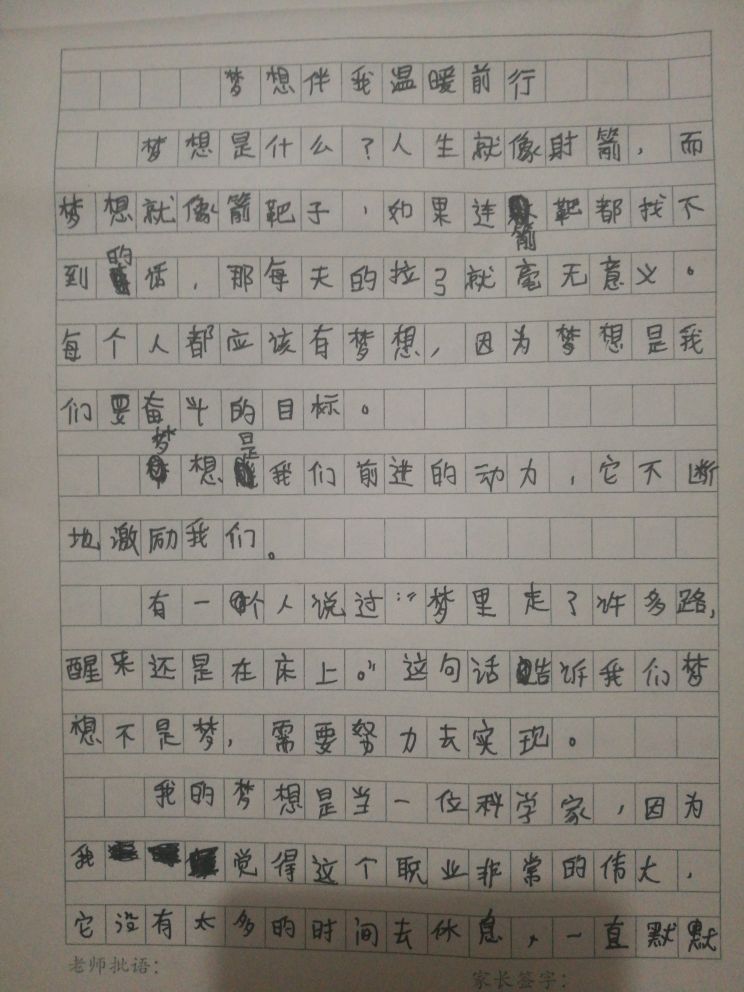 梦想伴我温暖前行
梦想是什么？人生就像射箭，而
梦想就像箭靶子，如果连箭靶都找不
到的话，那每天的拉弓就毫无意义。
每个人都应该有梦想，因为梦想是我
们要奋斗的目标。
梦想是我们前进的动力，它不断
地激励我们。
有一个人说过：“梦里走了许多路，
醒来还是在床上。”这句话告诉我们梦
想不是梦，需要努力去实现。
我的梦想是当一位科学家，因为
我觉得这个职业非常的伟大，
它没有太多的时间去休息，一直默默
老师批语：
家长签字：